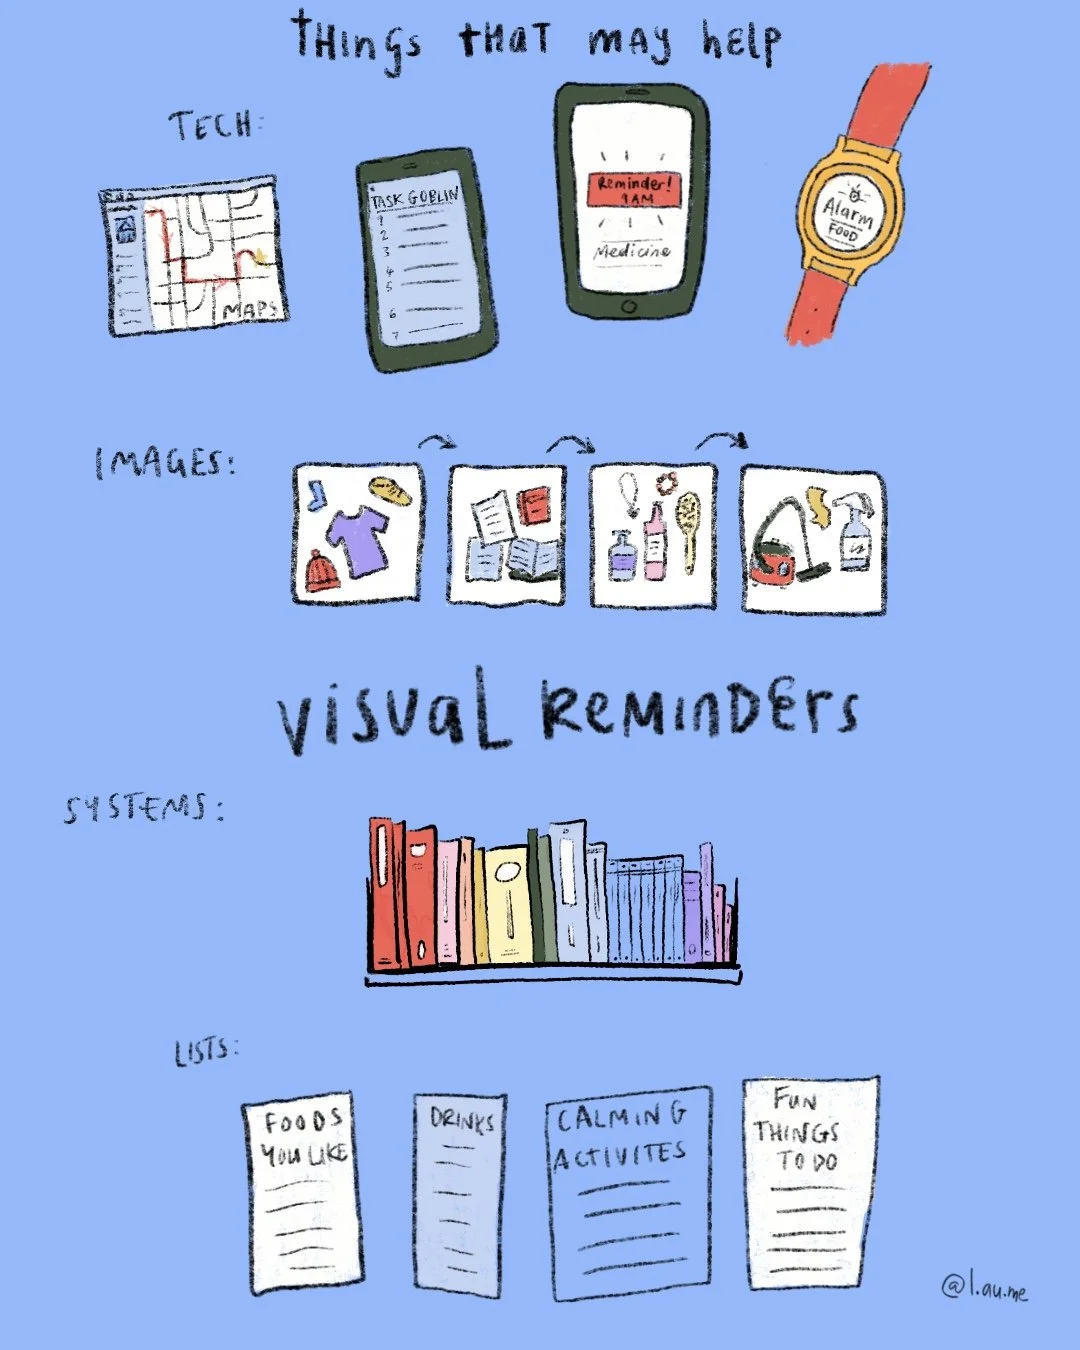 tHings tHaT may help
TECH:
MAPS
TASK GOBLIN
1
2
3
4
5
6
7
Reminder!
9 AM
Medicine
Alarm
FOOD
IMAGES:
VISUAL REMINDERS
SYSTEMS:
LISTS:
FOODS
YOU LIKE
DRINKS
CALMING
ACTIVITES
FUN
THINGS
TO DO
@l.au.me